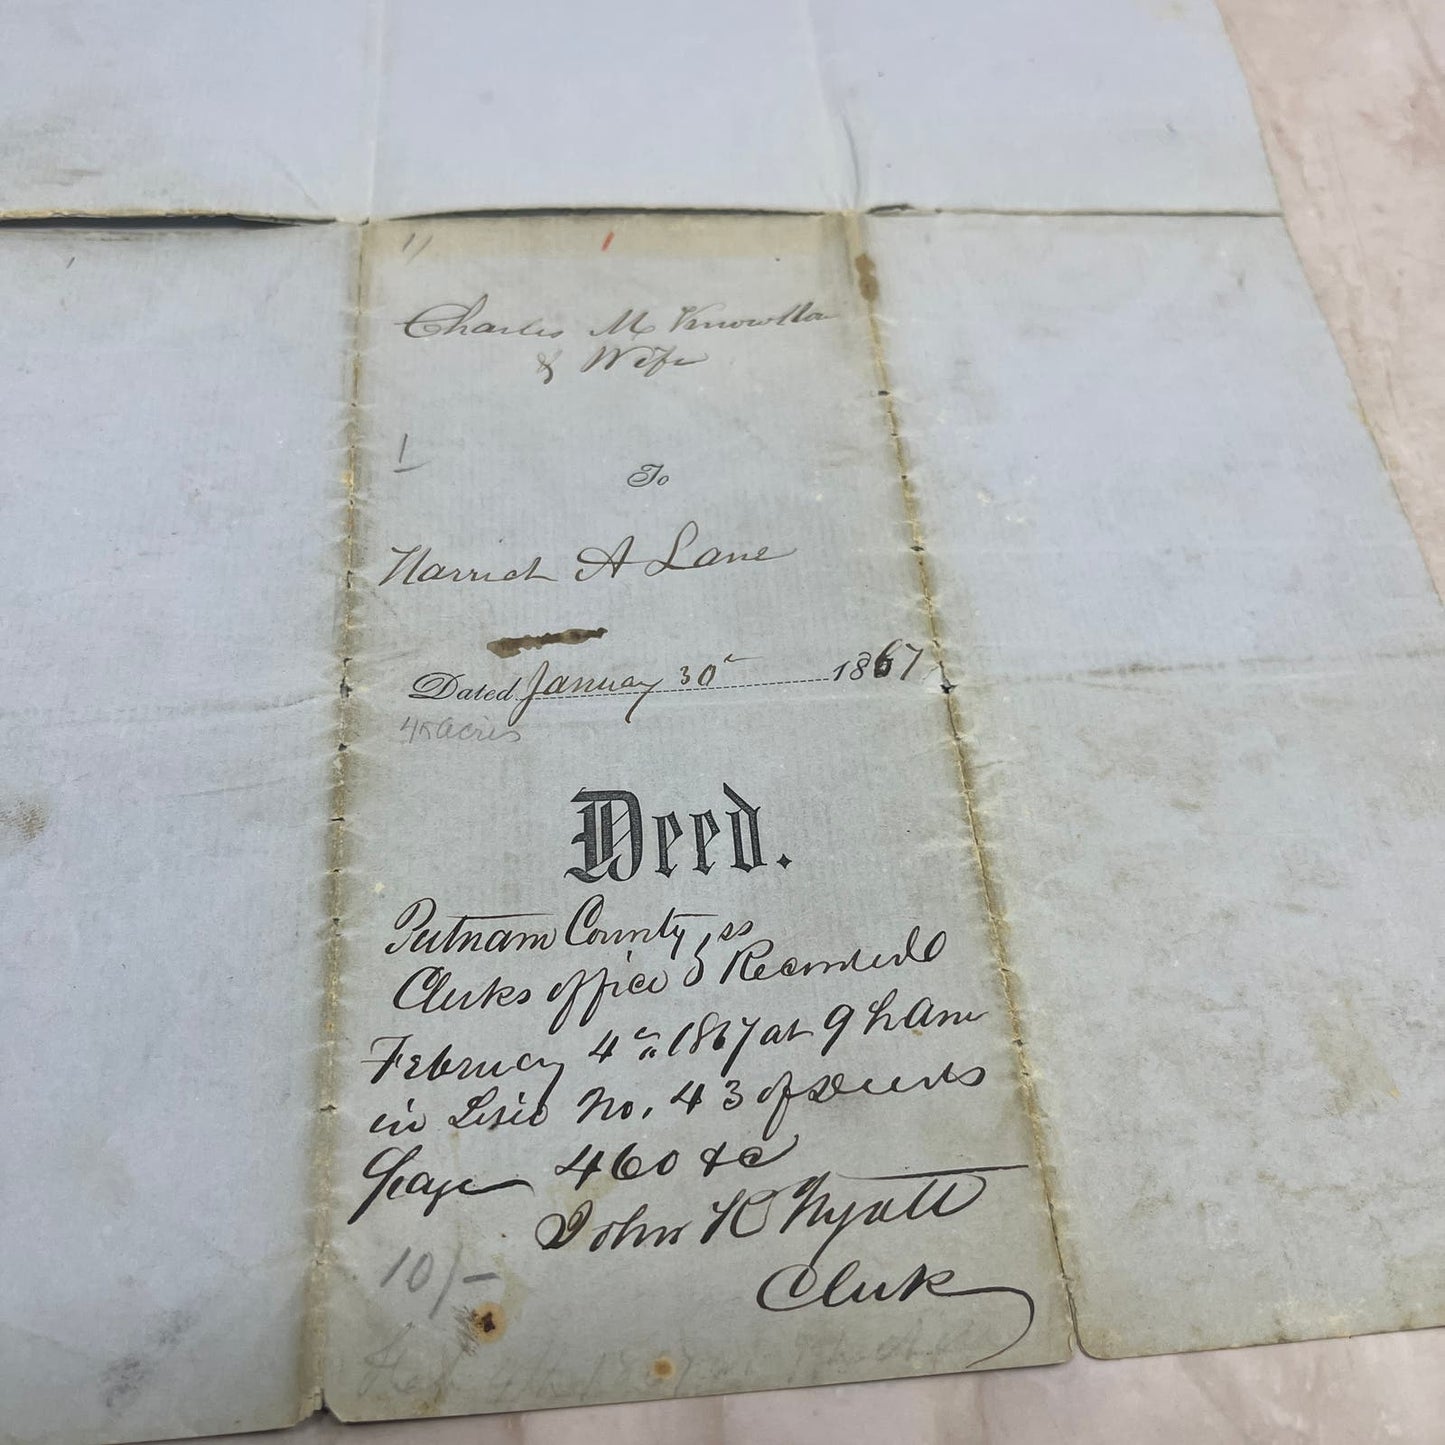 11 1
Charles M Knowlton
& Wife
1
To
Harriet A Lane
Dated January 30th 1867
45 acres
Deed.
Putnam County, ss
Clerks office } Recorded
February 4th 1867 at 9 h Am
in Liber No. 43 of Deeds
page 460 &c
John K Wyatt
Clerk
10/-
4th 1867